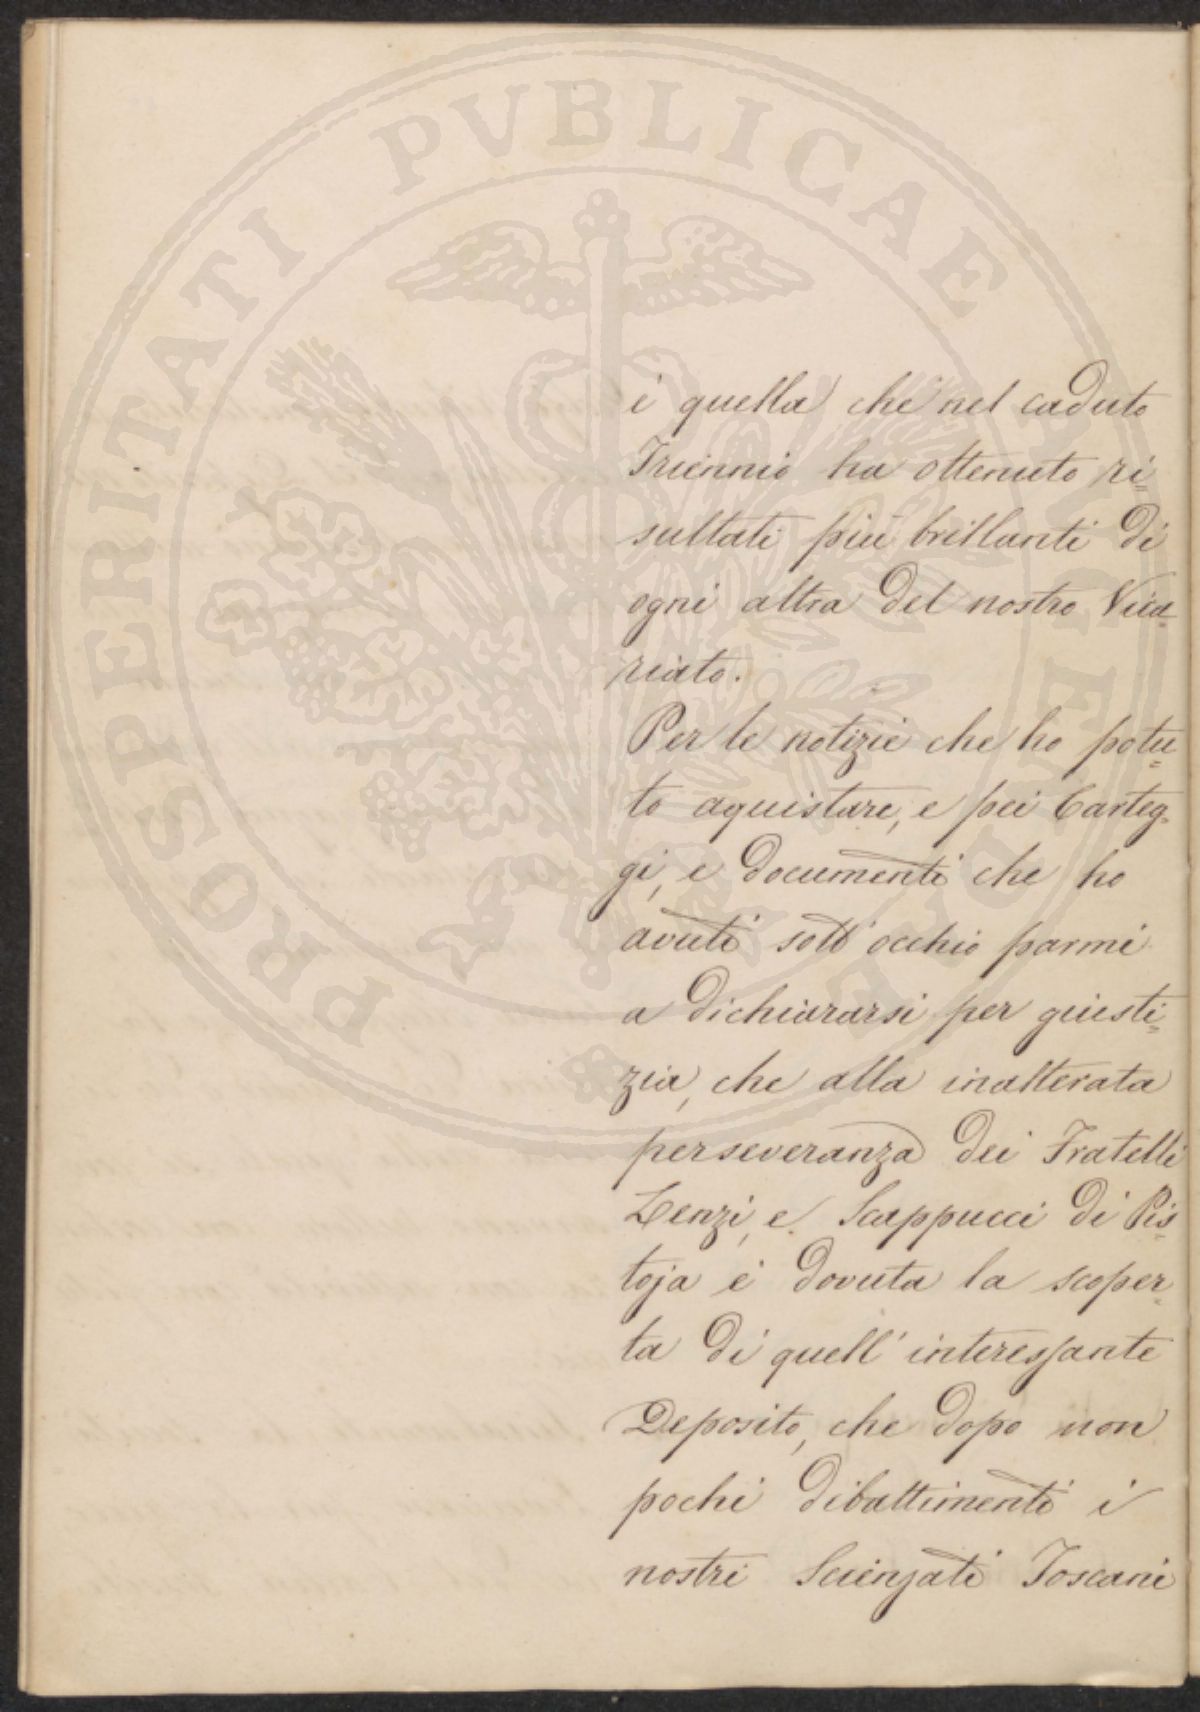 PROSPERITATI PUBLICAE AUGENDAE
è quella che nel caduto
Triennio ha ottenuto ri=
sultati più brillanti di
ogni altra del nostro Vica=
riato.
Per le notizie che ho potu=
to aquistare, e pei Carteg=
gi, e documenti che ho
avuti sott' occhio parmi
a dichiararsi per giusti=
zia, che alla inalterata
perseveranza dei Fratelli
Lenzi, e Scappucci di Pis=
toja è dovuta la scoper=
ta di quell' interessante
Deposito, che dopo non
pochi dibattimenti i
nostri Scienzati Toscani